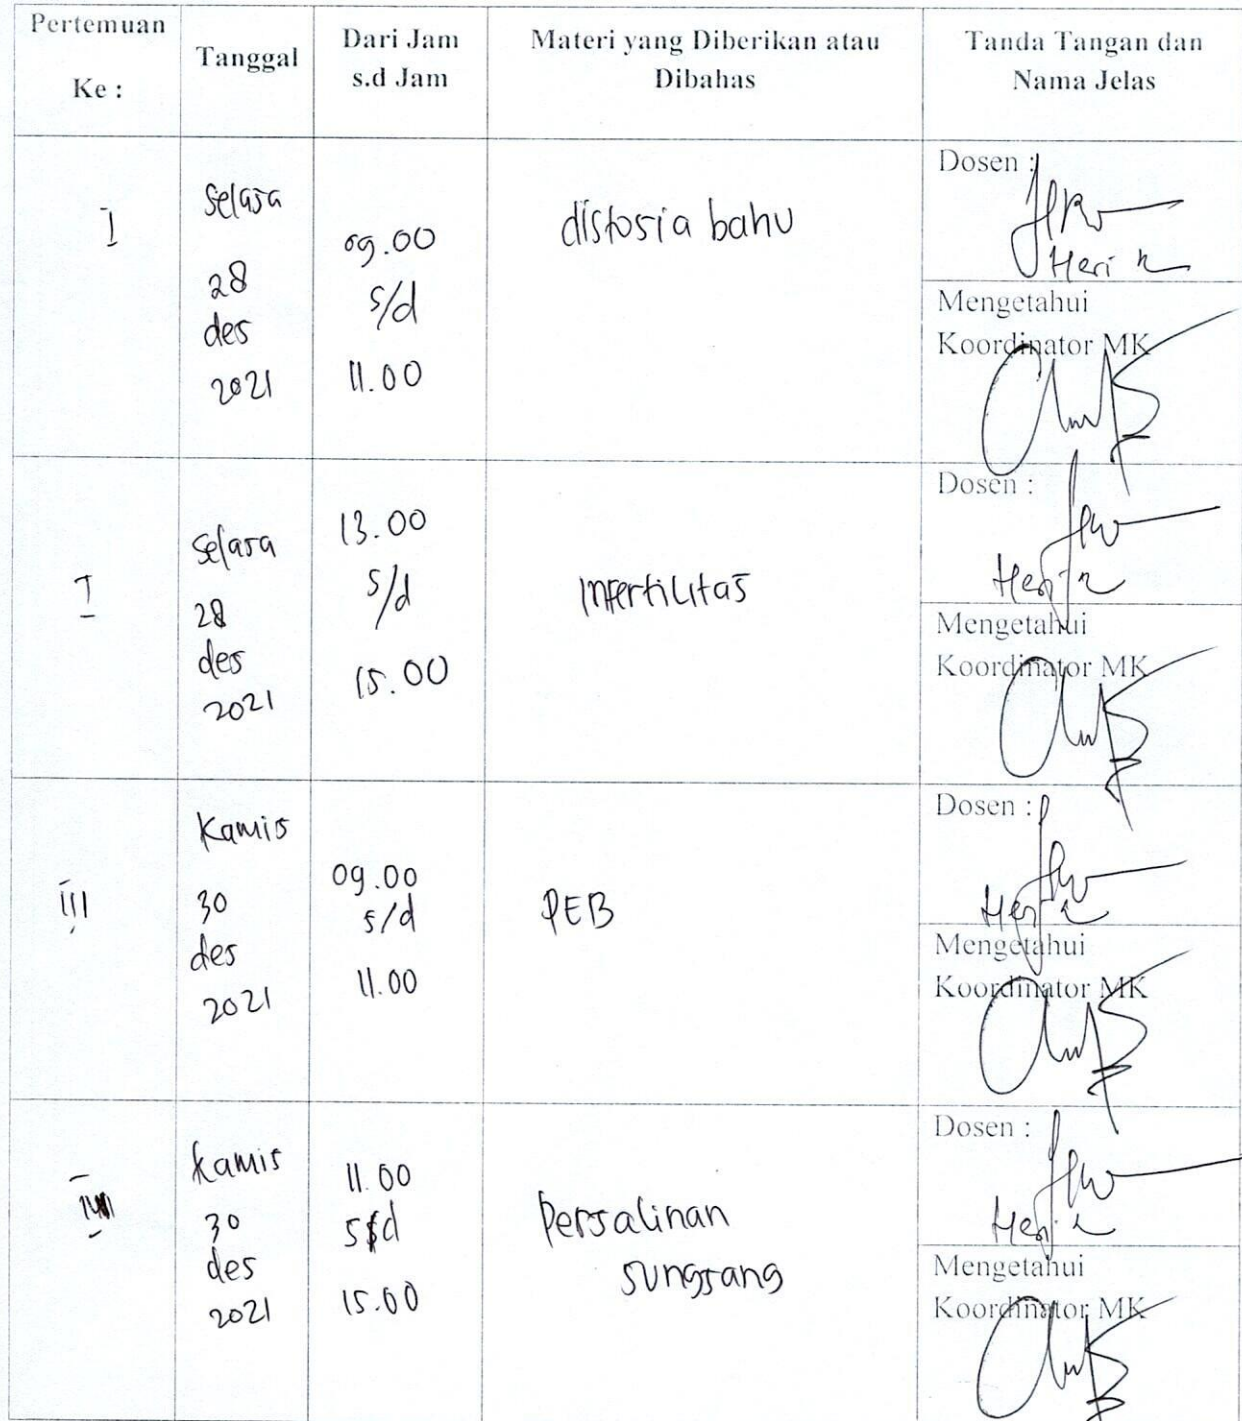 Pertemuan
Ke :
Tanggal
Dari Jam
s.d Jam
Materi yang Diberikan atau
Dibahas
Tanda Tangan dan
Nama Jelas
I
Selasa
28
des
2021
09.00
s/d
11.00
distosia bahu
Dosen :
Heri
Mengetahui
Koordinator MK
I
Selasa
28
des
2021
13.00
s/d
15.00
Infertilitas
Dosen :
Heri
Mengetahui
Koordinator MK
III
Kamis
30
des
2021
09.00
s/d
11.00
PEB
Dosen :
Heri
Mengetahui
Koordinator MK
Kamis
30
des
2021
11.00
s/d
15.00
Persalinan
sungsang
Dosen :
Heri
Mengetahui
Koordinator MK